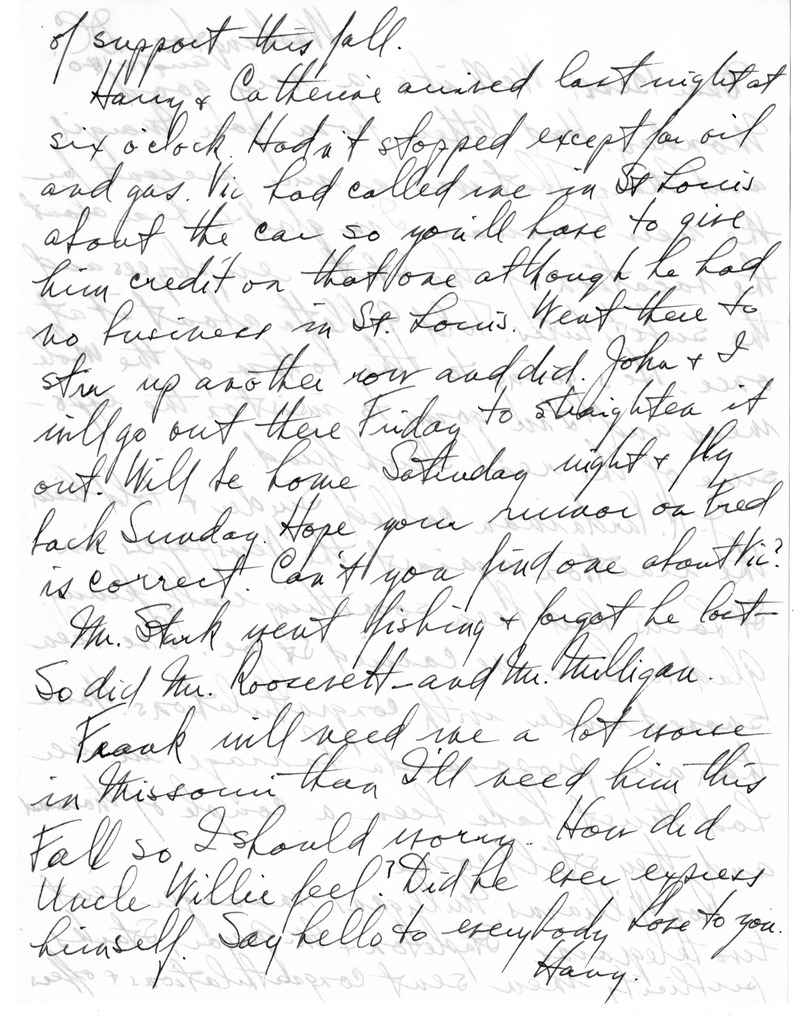 of support this fall.
Harry & Catherine arrived last night at
six o'clock. Hadn't stopped except for oil
and gas. Vic had called me in St Louis
about the car so you'll have to give
him credit on that one although he had
no business in St. Louis. Went there to
stir up another row and did. John & I
will go out there Friday to straighten it
out. Will be home Saturday night & fly
back Sunday. Hope your rumor on Fred
is correct. Can't you find one about Vic?
Mr. Stark went fishing & forgot he lost—
So did Mr. Roosevelt—and Mr. Milligan.
Frank will need me a lot worse
in Missouri than I'll need him this
Fall so I should worry. How did
Uncle Willie feel? Did he ever express
himself. Say hello to everybody Love to you.
Harry.